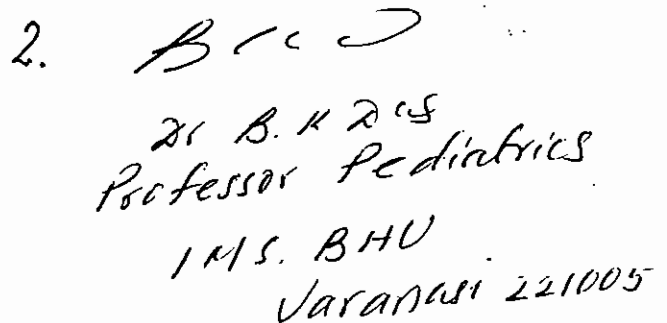 2.
Dr B. K Das
Professor Pediatrics
IMS. BHU
Varanasi 221005